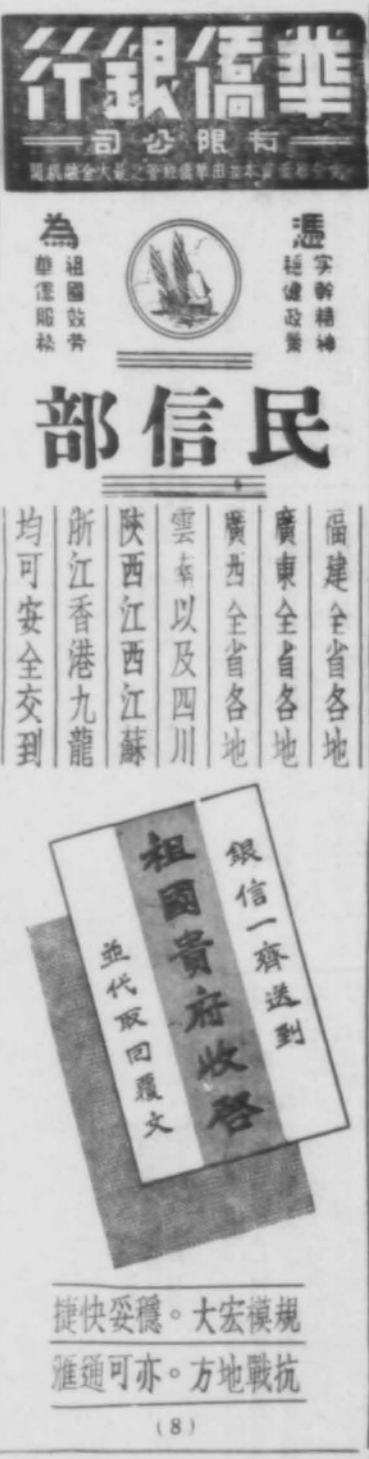 華僑銀行
有限公司
憑
实幹精神
穩健政策
為
祖國效勞
華僑服務
民信部
福建全省各地
廣東全省各地
廣西全省各地
雲南以及四川
陝西江西江蘇
浙江香港九龍
均可安全交到
銀信一齊送到
祖國貴府收啓
並代取回覆文
規模宏大。穩妥快捷
抗戰地方。亦可通滙
(8)